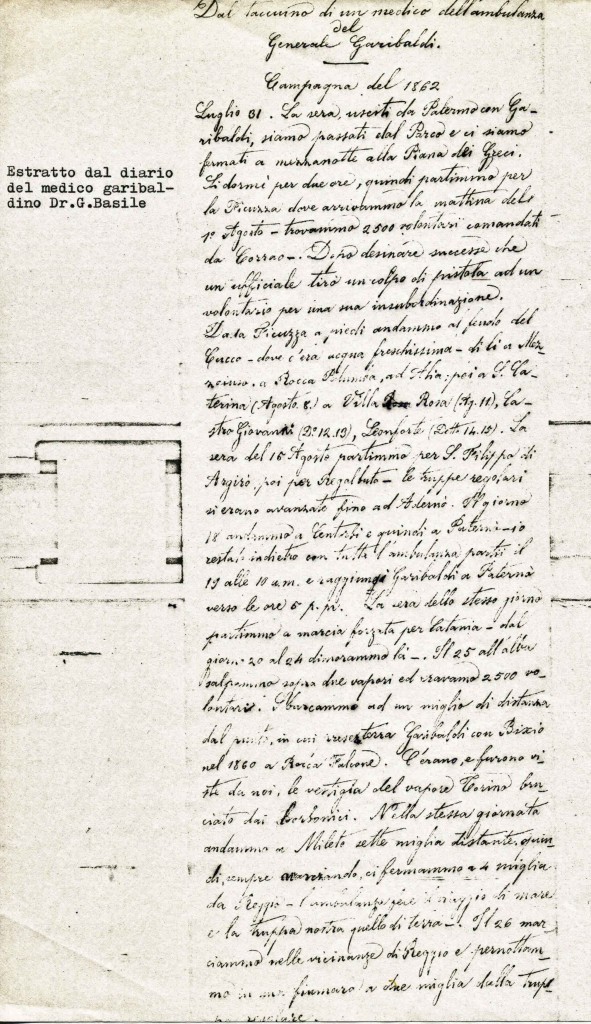 Dal taccuino di un medico dell'ambulanza
del
Generale Garibaldi.
Campagna del 1862
Luglio 31. La sera, usciti da Palermo con Ga-
ribaldi, siamo passati dal Parco e ci siamo
fermati a mezzanotte alla Piana dei Greci.
Si dormì per due ore, quindi partimmo per
la Ficuzza dove arrivammo la mattina del
1º Agosto - trovammo 2500 volontari comandati
da Corrao -. Dopo desinare successe che
un ufficiale tirò un colpo di pistola ad un
volontario per una sua insubordinazione.
Dalla Ficuzza a piedi andammo al feudo del
Cucco - dove c'era acqua freschissima - di lì a Mez-
zoiuso, a Rocca Palumba, ad Alia; poi a S. Ca-
terina (Agosto 8.) a Villa Rosa (Ag. 11), Ca-
stro Giovanni (Dº 12.13), Leonforte (Detto 14.15). La
sera del 15 Agosto partimmo per S. Filippo di
Argirò, poi per Regalbuto - le truppe regolari
si erano avanzate fino ad Adernò. Il giorno
18 andammo a Centorbi e quindi a Paternò - io
restai indietro con tutta l'ambulanza partii il
19 alle 10 a.m. e raggiunsi Garibaldi a Paternò
verso le ore 5 p.m. La sera dello stesso giorno
partimmo a marcia forzata per Catania - dal
giorno 20 al 24 dimorammo là -. Il 25 all'alba
salpammo sopra due vapori ed eravamo 2500 vo-
lontari. Sbarcammo ad un miglio di distanza
dal punto, in cui prese terra Garibaldi con Bixio
nel 1860 a Rocca Falcone. C'erano, e furono vi-
ste da noi, le vestigia del vapore Torino bru-
ciato dai borbonici. Nella stessa giornata
andammo a Mileto sette miglia distante, quin-
di, sempre avanzando, ci fermammo a 4 miglia
da Reggio - l'ambulanza fece il viaggio di mare
e la truppa nostra quello di terra -. Il 26 mar-
ciammo nelle vicinanze di Reggio e pernottam-
mo in una fiumara a due miglia dalla trup-
pa regolare.
Estratto dal diario
del medico garibal-
dino Dr.G.Basile